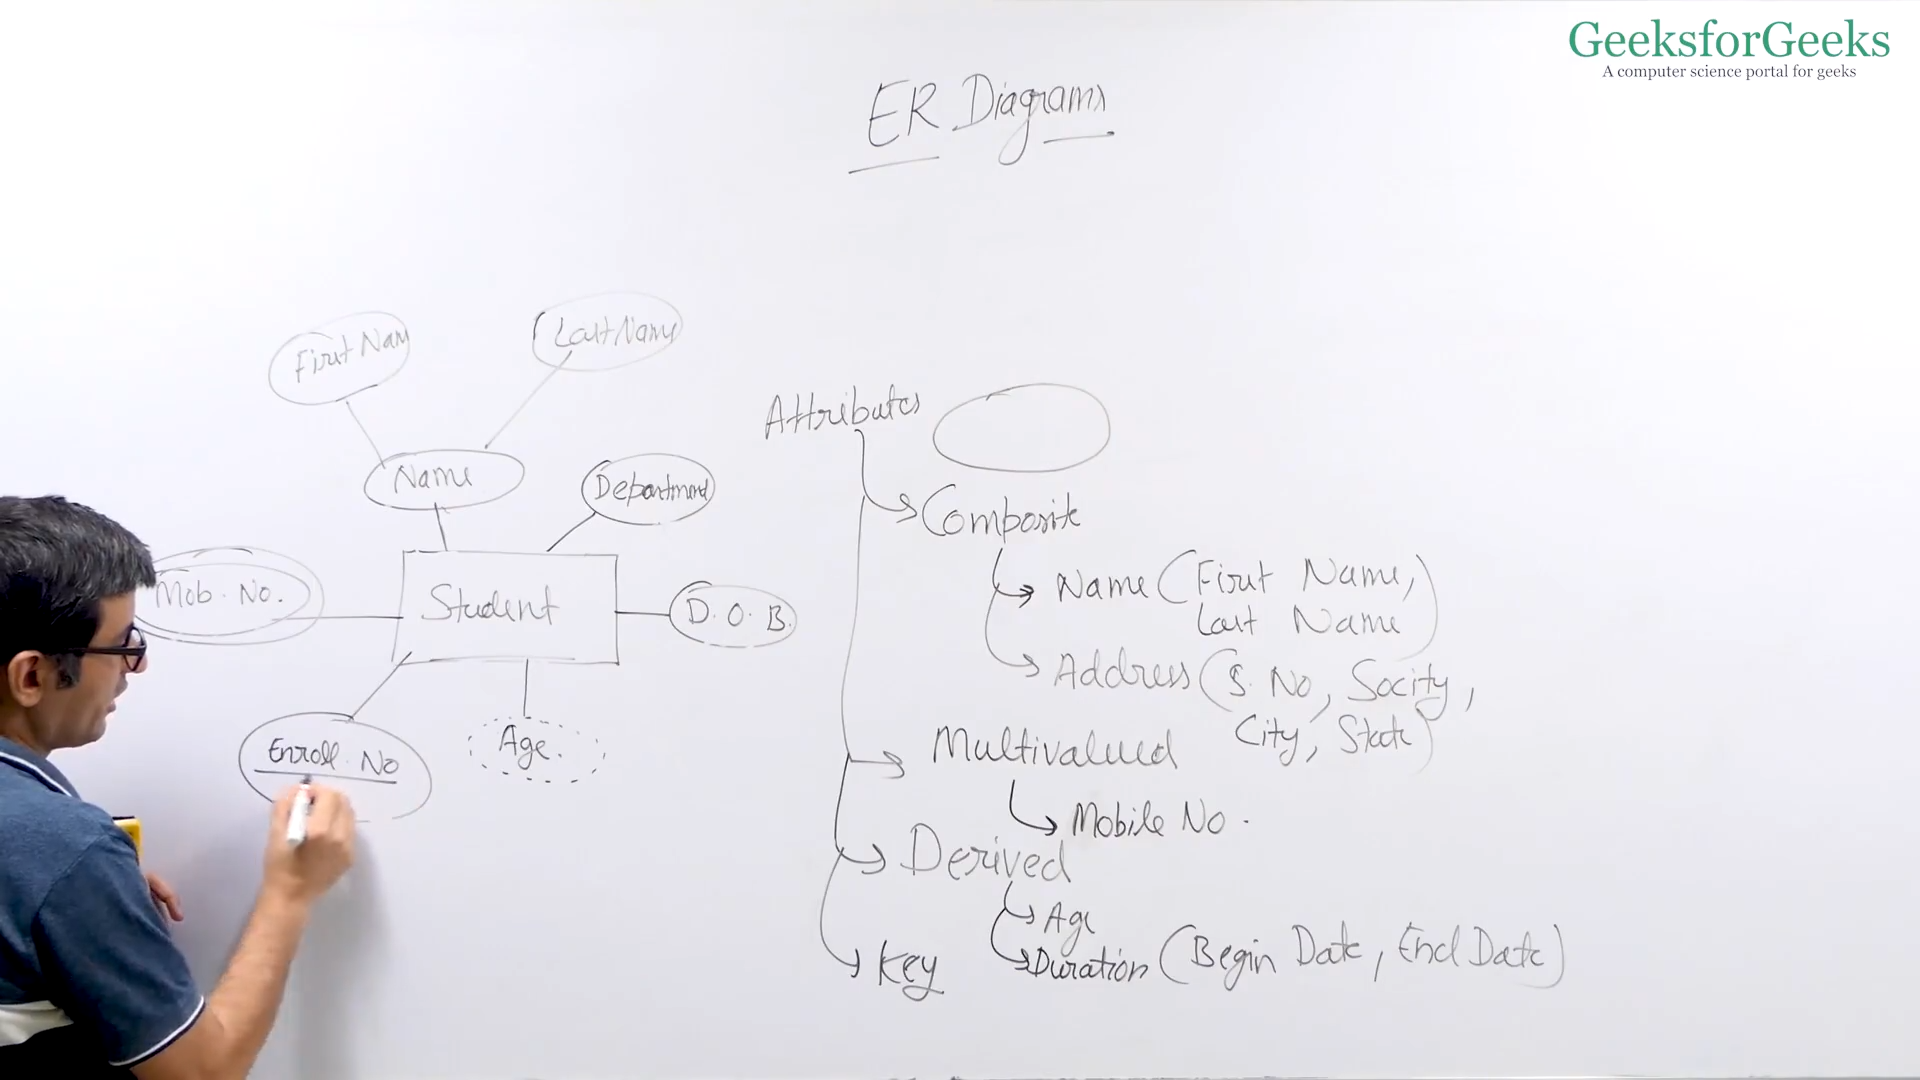 GeeksforGeeks
A computer science portal for geeks
ER Diagrams
First Nam
Last Name
Name
Department
Mob. No.
Student
D. O. B.
Enroll. No
Age.
Attributes
Composite
Name (First Name,
Last Name)
Address (S. No, Socity,
City, State)
Multivalued
Mobile No.
Derived
Age
Duration (Begin Date, End Date)
Key